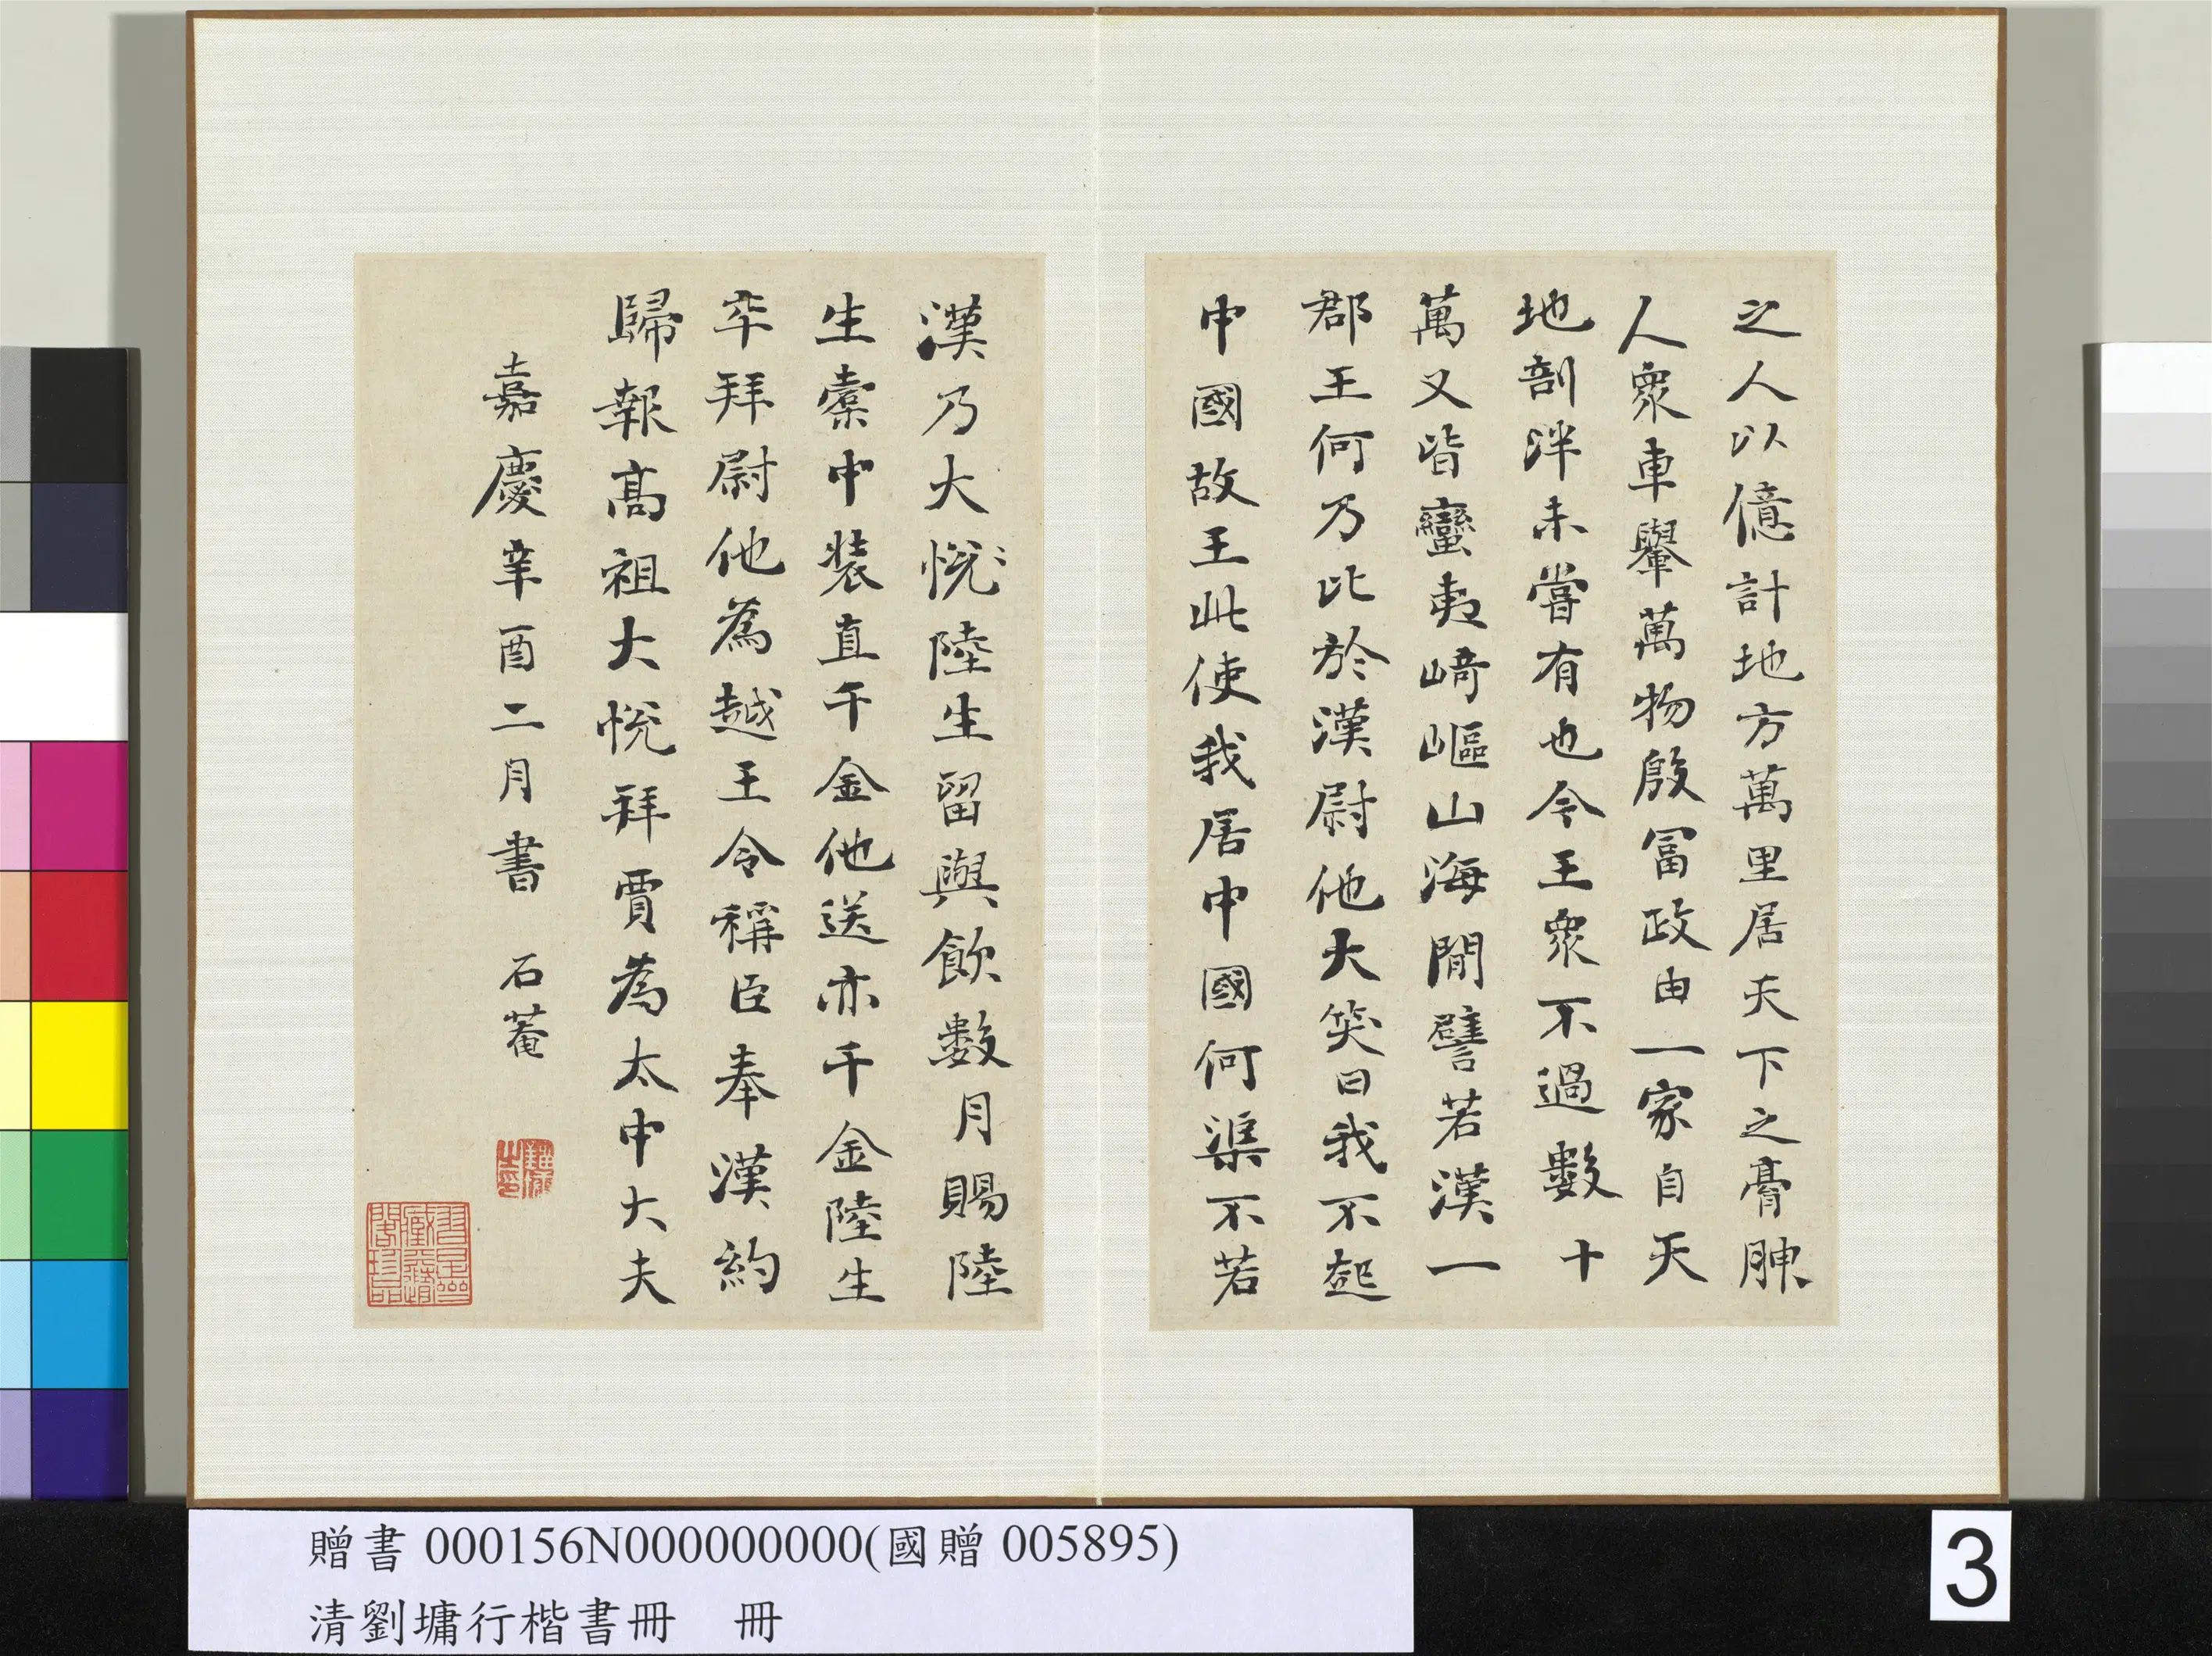 之人以億計地方萬里居天下之膏腴
人衆車轝萬物殷富政由一家自天
地剖泮未嘗有也今王衆不過數十
萬又皆蠻夷崎嶇山海閒譬若漢一
郡王何乃比於漢尉他大笑曰我不起
中國故王此使我居中國何渠不若
漢乃大悅〻陸生留與飲數月賜陸
生橐中装直千金他送亦千金陸生
卒拜尉他為越王令稱臣奉漢約
歸報髙祖大悅拜賈為太中大夫
嘉慶辛酉二月書 石菴
贈書 000156N000000000(國贈 005895)
清劉墉行楷書冊 冊
3